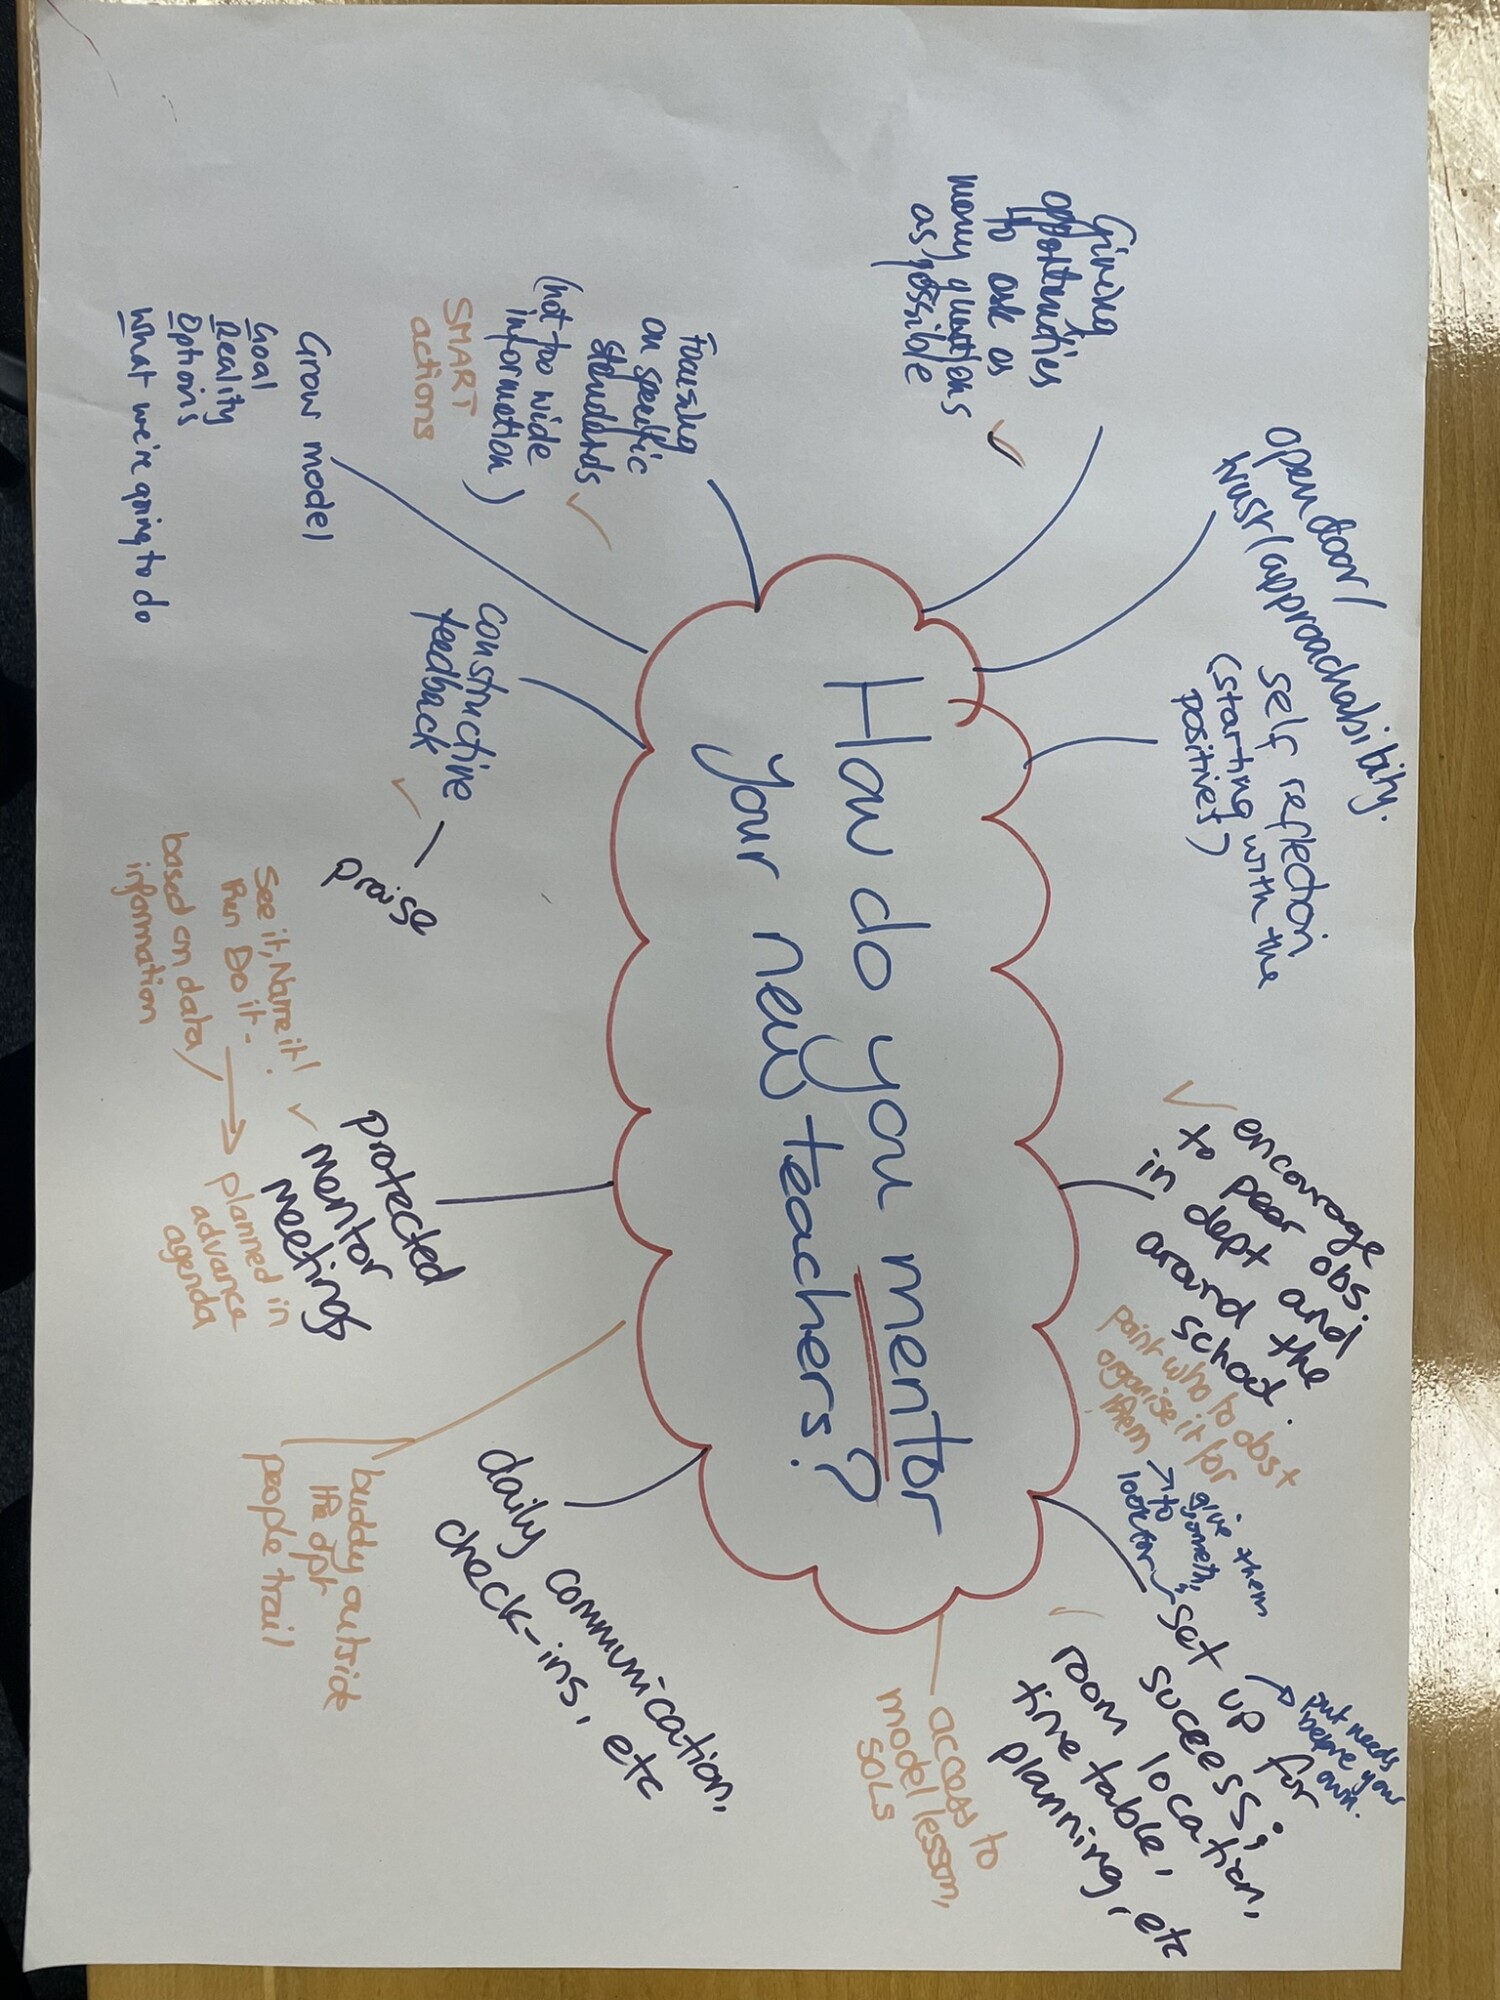 How do you mentor
your new teachers?
Giving
opportunities
to ask as
many questions
as possible
open door/
trust/approachability.
self reflection
(starting with the
positives)
encourage
to peer obs.
in dept and
around the
school.
point who to obs +
organise it for
them
give them
to
look for
put needs
before your
own.
set up for
sucess;
room location,
time table,
planning, etc
access to
model lesson,
SOLs
daily communication,
check-ins, etc
buddy outside
the dpt
people trail
protected
mentor
meetings
See it, Name it!
Then Do it -
based on data/
information
planned in
advance
agenda
constructive
feedback
praise
Grow model
Goal
Reality
Options
What we're going to do
Focusing
on specific
standards
(not too wide
information)
SMART
actions